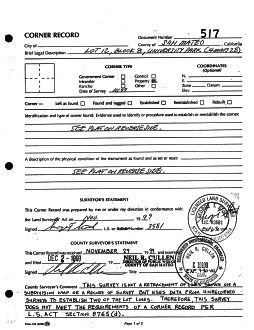 CORNER RECORD
Document Number 517
City of
County of SAN MATEO California
Brief Legal Description LOT 12, BLOCK 8, UNIVERSITY PARK
CORNER TYPE
COORDINATES
(Optional)
Government Corner Control
Meander Property
Rancho Other
Date of Survey
N.
E.
Zone Datum
Elev.
Corner — Left as found Found and tagged Established Reestablished Rebuilt
Identification and type of corner found: Evidence used to identify or procedure used to establish or reestablish the corner:
SEE PLAT ON REVERSE SIDE.
A description of the physical condition of the monument as found and as set or reset:
SEE PLAT ON REVERSE SIDE.
SURVEYOR'S STATEMENT
This Corner Record was prepared by me or under my direction in conformance with
the Land Surveyors' Act on NOV.
Signed L.S. or 3581
COUNTY SURVEYOR'S STATEMENT
This Corner Record was received NOVEMBER 29
DEC - 2
and examined and filed
Signed
NEIL R. CULLEN
COUNTY OF SAN MATEO
County Surveyor's Comment THIS SURVEY ISN'T A RETRACEMENT OF LINES SHOWN ON A
SUBDIVISION MAP OR A RECORD OF SURVEY BUT USES DATA FROM UNRECORDED
SURVEYS TO ESTABLISH TWO OF THE LOT LINES. THEREFORE, THIS SURVEY
DOES NOT MEET THE REQUIREMENTS OF A CORNER RECORD PER
L.S. ACT SECTION 8765(d).
Page 1 of 2